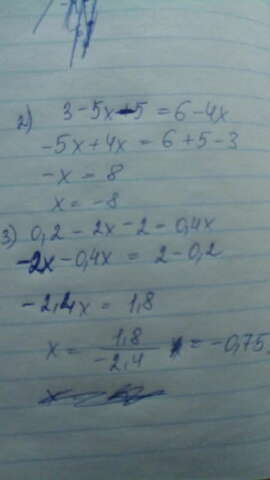 2) 3-5x-5=6-4x
-5x+4x=6+5-3
-x=8
x=-8
3) 0,2-2x-2-0,4x
-2x-0,4x=2-0,2
-2,4x=1,8
x=1,8/-2,4 x=-0,75